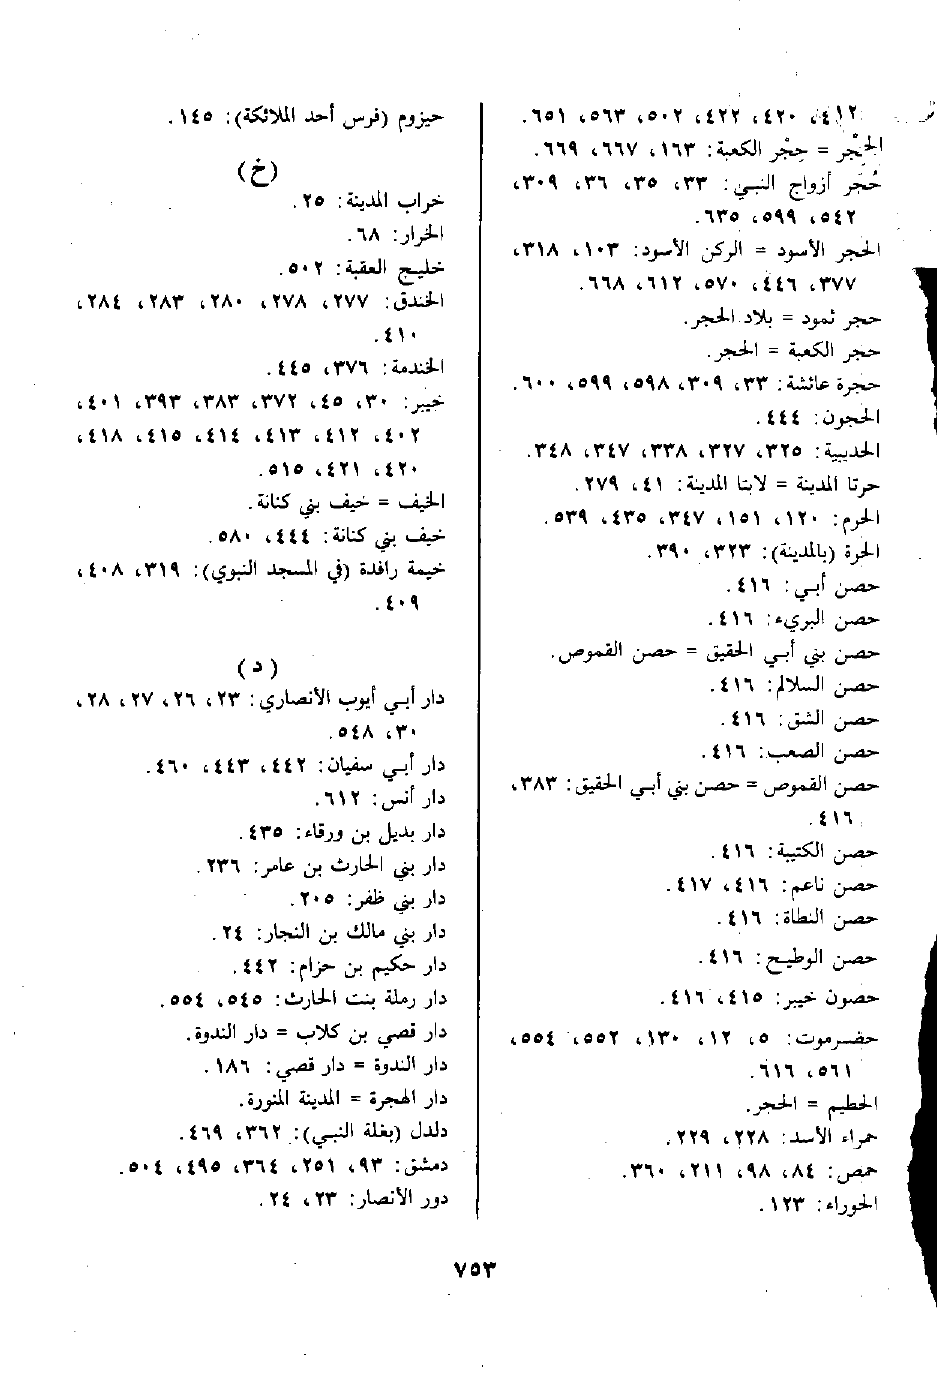 ٤١٢، ٤٢٠، ٤٢٢، ٥٠٢، ٥٦٣، ٦٥١.
الحِجْر = حِجْر الكعبة: ١٦٣، ٦٦٧، ٦٦٩.
حُجَر أزواج النبي: ٣٣، ٣٥، ٣٦، ٣٠٩،
٥٤٢، ٥٩٩، ٦٣٥.
الحجر الأسود = الركن الأسود: ١٠٣، ٣١٨،
٣٧٧، ٤٤٦، ٥٧٠، ٦١٢، ٦٦٨.
حجر ثمود = بلاد الحجر.
حجر الكعبة = الحجر.
حجرة عائشة: ٣٣، ٣٠٩، ٥٩٨، ٥٩٩، ٦٠٠.
الحجون: ٤٤٤.
الحديبية: ٣٢٥، ٣٢٧، ٣٣٨، ٣٤٧، ٣٤٨.
حرتا المدينة = لابتا المدينة: ٤١، ٢٧٩.
الحرم: ١٢٠، ١٥١، ٣٤٧، ٤٣٥، ٥٣٩.
الحرة (بالمدينة): ٣٢٣، ٣٩٠.
حصن أبي: ٤١٦.
حصن البريء: ٤١٦.
حصن بني أبي الحقيق = حصن القموص.
حصن السلالم: ٤١٦.
حصن الشق: ٤١٦.
حصن الصعب: ٤١٦.
حصن القموص = حصن بني أبي الحقيق: ٣٨٣،
٤١٦.
حصن الكتيبة: ٤١٦.
حصن ناعم: ٤١٦، ٤١٧.
حصن النطاة: ٤١٦.
حصن الوطيح: ٤١٦.
حصون خيبر: ٤١٥، ٤١٦.
حضرموت: ٥، ١٢، ١٣٠، ٥٥٢، ٥٥٤،
٥٦١، ٦١٦.
الحطيم = الحجر.
حمراء الأسد: ٢٢٨، ٢٢٩.
حمص: ٨٤، ٩٨، ٢١١، ٣٦٠.
الحوراء: ١٢٣.
حيزوم (فرس أحد الملائكة): ١٤٥.
(خ)
خراب المدينة: ٢٥.
الخرار: ٦٨.
خليج العقبة: ٥٠٢.
الخندق: ٢٧٧، ٢٧٨، ٢٨٠، ٢٨٣، ٢٨٤،
٤١٠.
الخندمة: ٣٧٦، ٤٤٥.
خيبر: ٣٠، ٤٥، ٣٧٢، ٣٨٣، ٣٩٣، ٤٠١،
٤٠٢، ٤١٢، ٤١٣، ٤١٤، ٤١٥، ٤١٨،
٤٢٠، ٤٢١، ٥١٥.
الخيف = خيف بني كنانة.
خيف بني كنانة: ٤٤٤، ٥٨٠.
خيمة رافدة (في المسجد النبوي): ٣١٩، ٤٠٨،
٤٠٩.
(د)
دار أبي أيوب الأنصاري: ٢٣، ٢٦، ٢٧، ٢٨،
٣٠، ٥٤٨.
دار أبي سفيان: ٤٤٢، ٤٤٣، ٤٦٠.
دار أنس: ٦١٢.
دار بديل بن ورقاء: ٤٣٥.
دار بني الحارث بن عامر: ٢٣٦.
دار بني ظفر: ٢٠٥.
دار بني مالك بن النجار: ٢٤.
دار حكيم بن حزام: ٤٤٢.
دار رملة بنت الحارث: ٥٤٥، ٥٥٤.
دار قصي بن كلاب = دار الندوة.
دار الندوة = دار قصي: ١٨٦.
دار الهجرة = المدينة المنورة.
دلدل (بغلة النبي): ٣٦٢، ٤٦٩.
دمشق: ٩٣، ٢٥١، ٣٦٤، ٤٩٥، ٥٠٤.
دور الأنصار: ٢٣، ٢٤.
٧٥٣